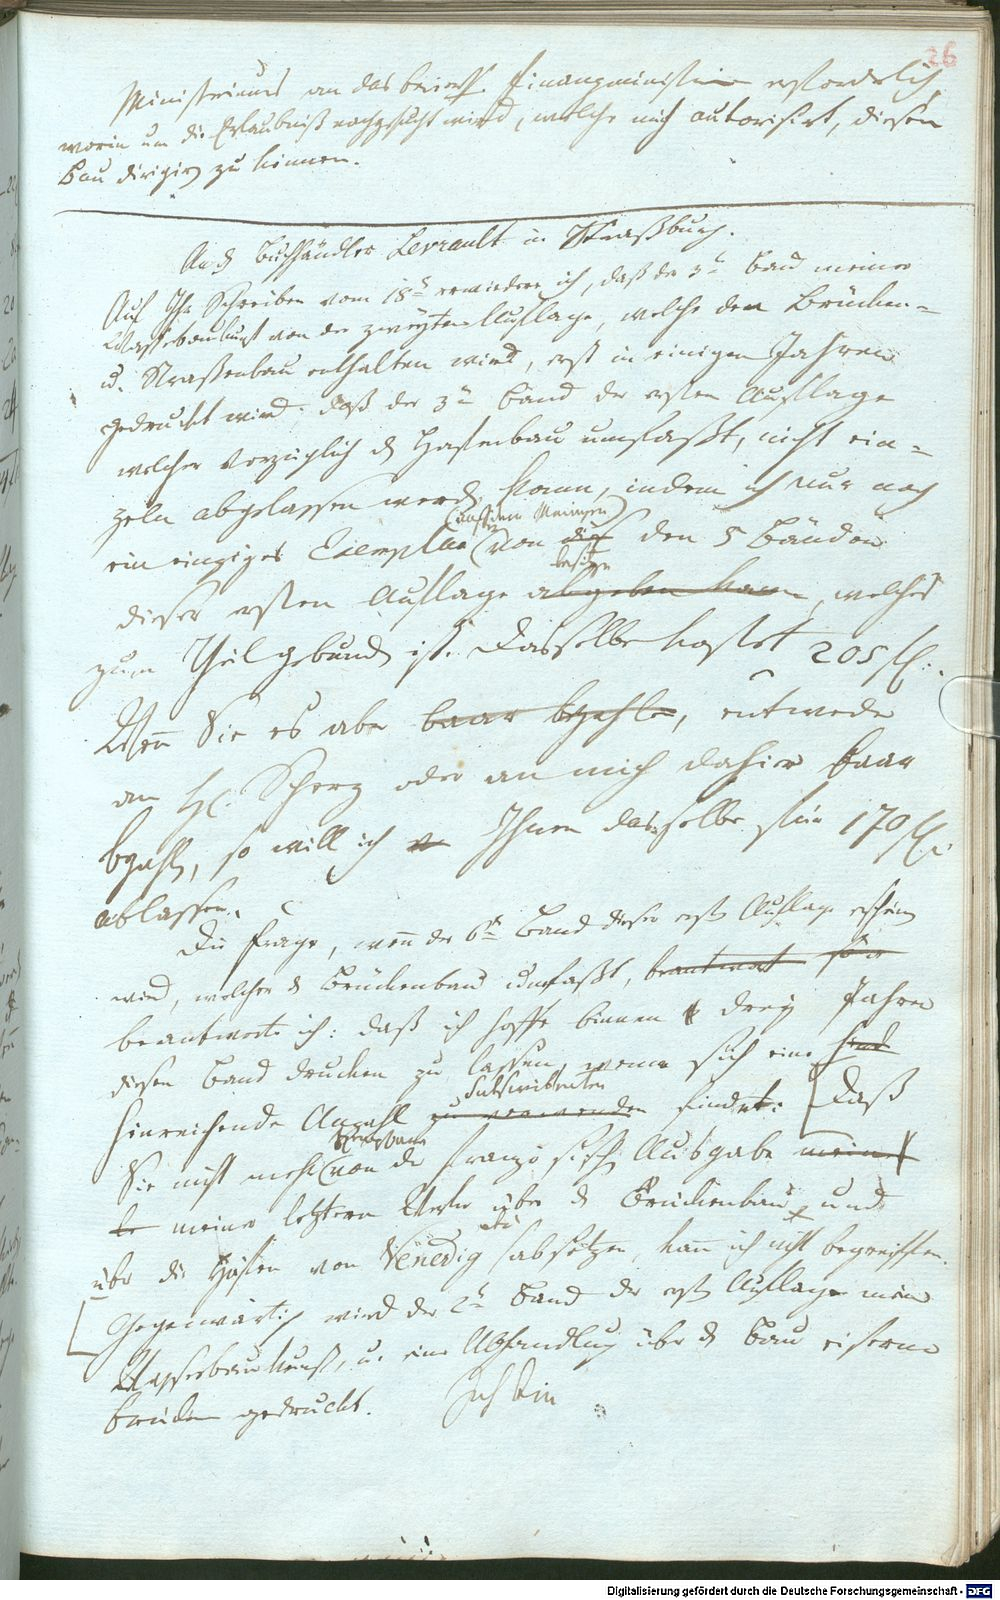 26
Ministeriums an das bayerisch. Finanzministerium erforderlich,
worin um die Erlaubniß nachgesucht wird, welche mich autorisirt, diesen
Bau dirigiren zu können.
An den Buchhändler Levrault in Straßburg.
Auf Ihr Schreiben vom 18ten erwiedere ich, daß der 3te Band meiner
Wasserbaukunst von der zweyten Auflage, welche den Brücken-
u. Straßenbau enthalten wird, erst in einigen Jahren
gedruckt wird; daß der 3te Band der ersten Auflage
welcher vorzüglich den Hafenbau umfaßt, nicht ein-
zeln abgelassen werden kann, indem ich nur noch
(außer dem Meinigen)
ein einziges Exemplar von die den 5 Bänden
besitze
dieser ersten Auflage abgeben kann, welches
zum Theil gebunden ist. Dasselbe kostet 205 fl.
Wenn Sie es aber baar bezahlen, entweder
an H. Scherz oder an mich dahier baar
bezahlen, so will ich Ihnen dasselbe für 170 fl.
ablassen.
Die Frage, wenn der 6te Band dieser ersten Auflage erscheinen
wird, welcher den Brückenbau umfaßt, beantwort für
beantworte ich: daß ich hoffe binnen drey Jahren
diesen Band drucken zu lassen, wenn sich eine
Subscribenten
hinreichende Anzahl zu verwenden findet: Daß
Exemplare
Sie nicht mehr von der französisch. Ausgabe meines
meiner letztern Werke über den Brückenbau, und
über die Häfen von Venedig absetzen, kann ich nicht begreiffen.
Gegenwärtig wird der 2te Band der ersten Auflage meiner
Wasserbaukunst, u. eine Abhandlung über den Bau eiserner
Brücken gedruckt. Ich bin
Digitalisierung gefördert durch die Deutsche Forschungsgemeinschaft - DFG